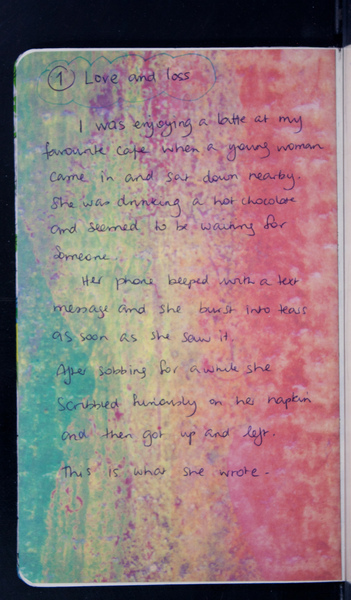 1 Love and loss
I was enjoying a latte at my
favourite cafe when a young woman
came in and sat down nearby.
She was drinking a hot chocolate
and seemed to be waiting for
someone.
Her phone beeped with a text
message and she burst into tears
as soon as she saw it.
After sobbing for a while she
scribbled furiously on her napkin
and then got up and left.
This is what she wrote -